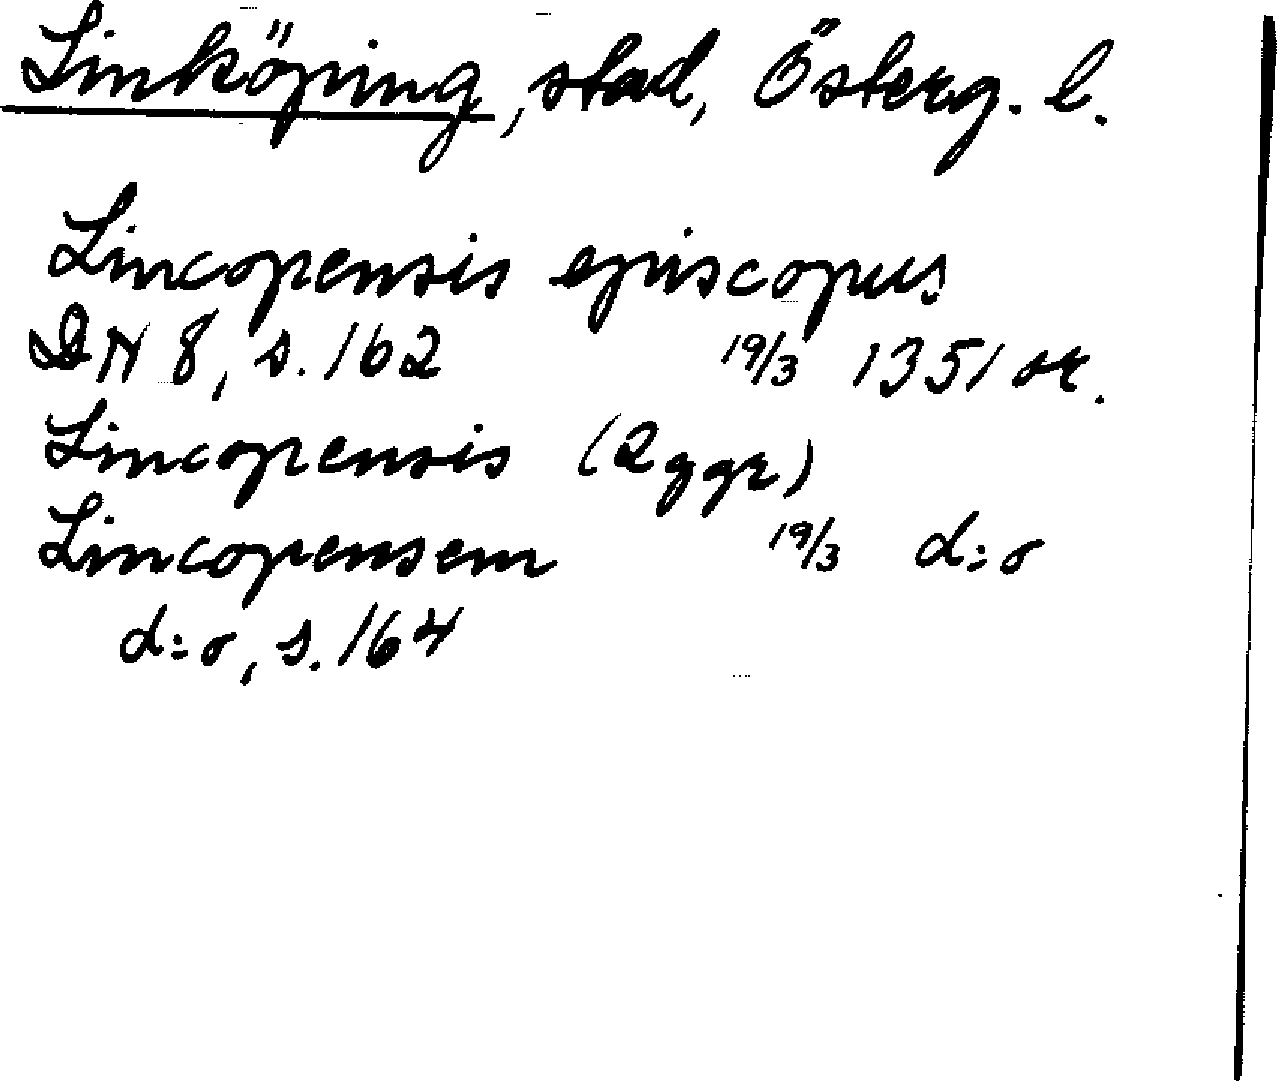 Linköping, stad, Österg. l.
Lincopensis episcopus
DN 8, s. 162 19/3 1351 or.
Lincopensis (2 ggr)
Lincopensem 19/3 d:o
d:o, s. 164